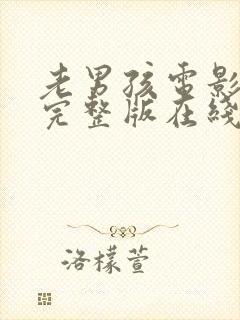 老男孩电影
完整版在线
洛檬萱